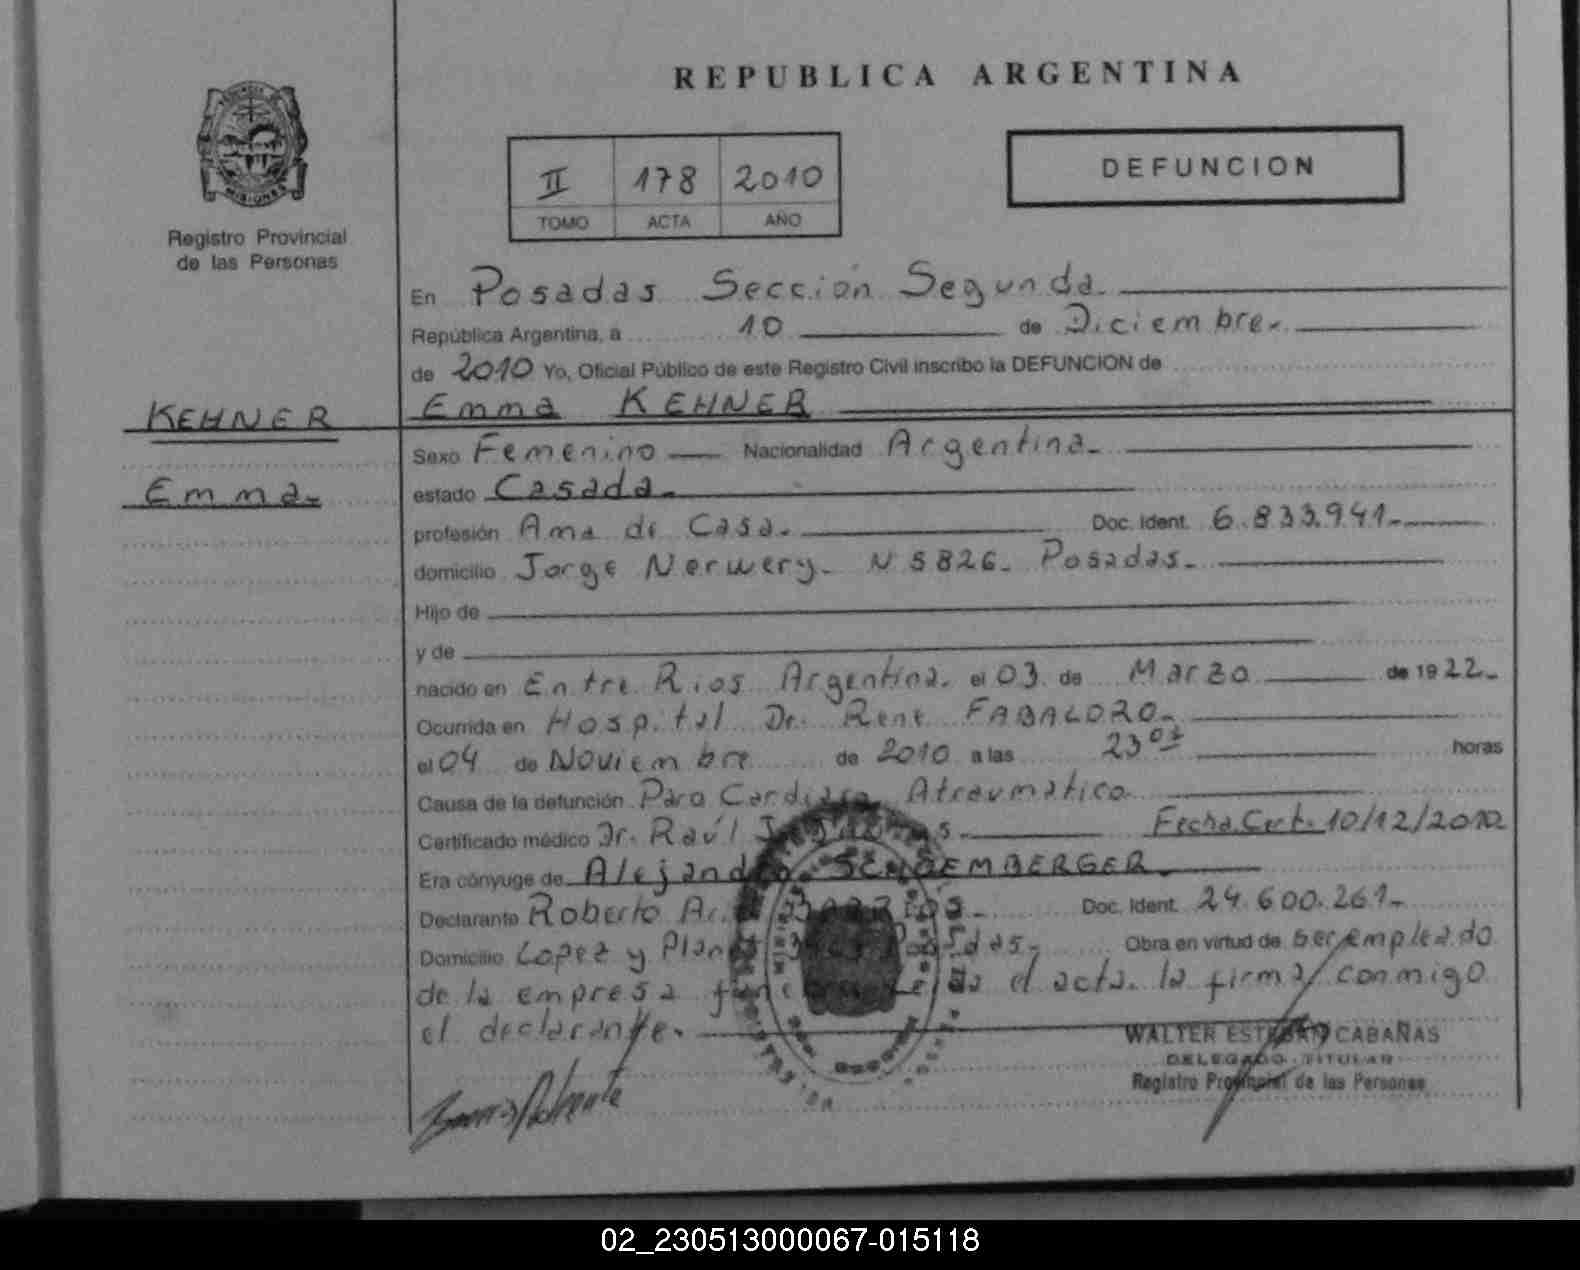 REPUBLICA ARGENTINA
MISIONES
Registro Provincial
de las Personas
II 178 2010
TOMO ACTA AÑO
DEFUNCION
En Posadas Sección Segunda.
República Argentina, a 10 de Diciembre.
de 2010 Yo, Oficial Público de este Registro Civil inscribo la DEFUNCION de
Emma KEHNER
KEHNER
Emma.
Sexo Femenino Nacionalidad Argentina.
estado Casada.
profesión Ama de Casa. Doc. Ident. 6.833.941.
domicilio Jorge Nerwery. N 5826. Posadas.
Hijo de
y de
nacido en Entre Rios Argentina. el 03 de Marzo de 1922.
Ocurrida en Hospital Dr. Rene FABALORO.
el 04 de Noviembre de 2010 a las 23 horas
Causa de la defunción Paro Cardiaco Atraumatico
Certificado médico Dr. Raúl Fecha Cert. 10/12/2010
Era cónyuge de Alejandro SCHOEMBERGER.
Declarante Roberto Doc. Ident. 24.600.261.
Domicilio Lopez y Planes Posadas. Obra en virtud de ser empleado
de la empresa el acta. la firma conmigo
el declarante.
WALTER ESTEBAN CABAÑAS
DELEGADO TITULAR
Registro Provincial de las Personas
02_230513000067-015118